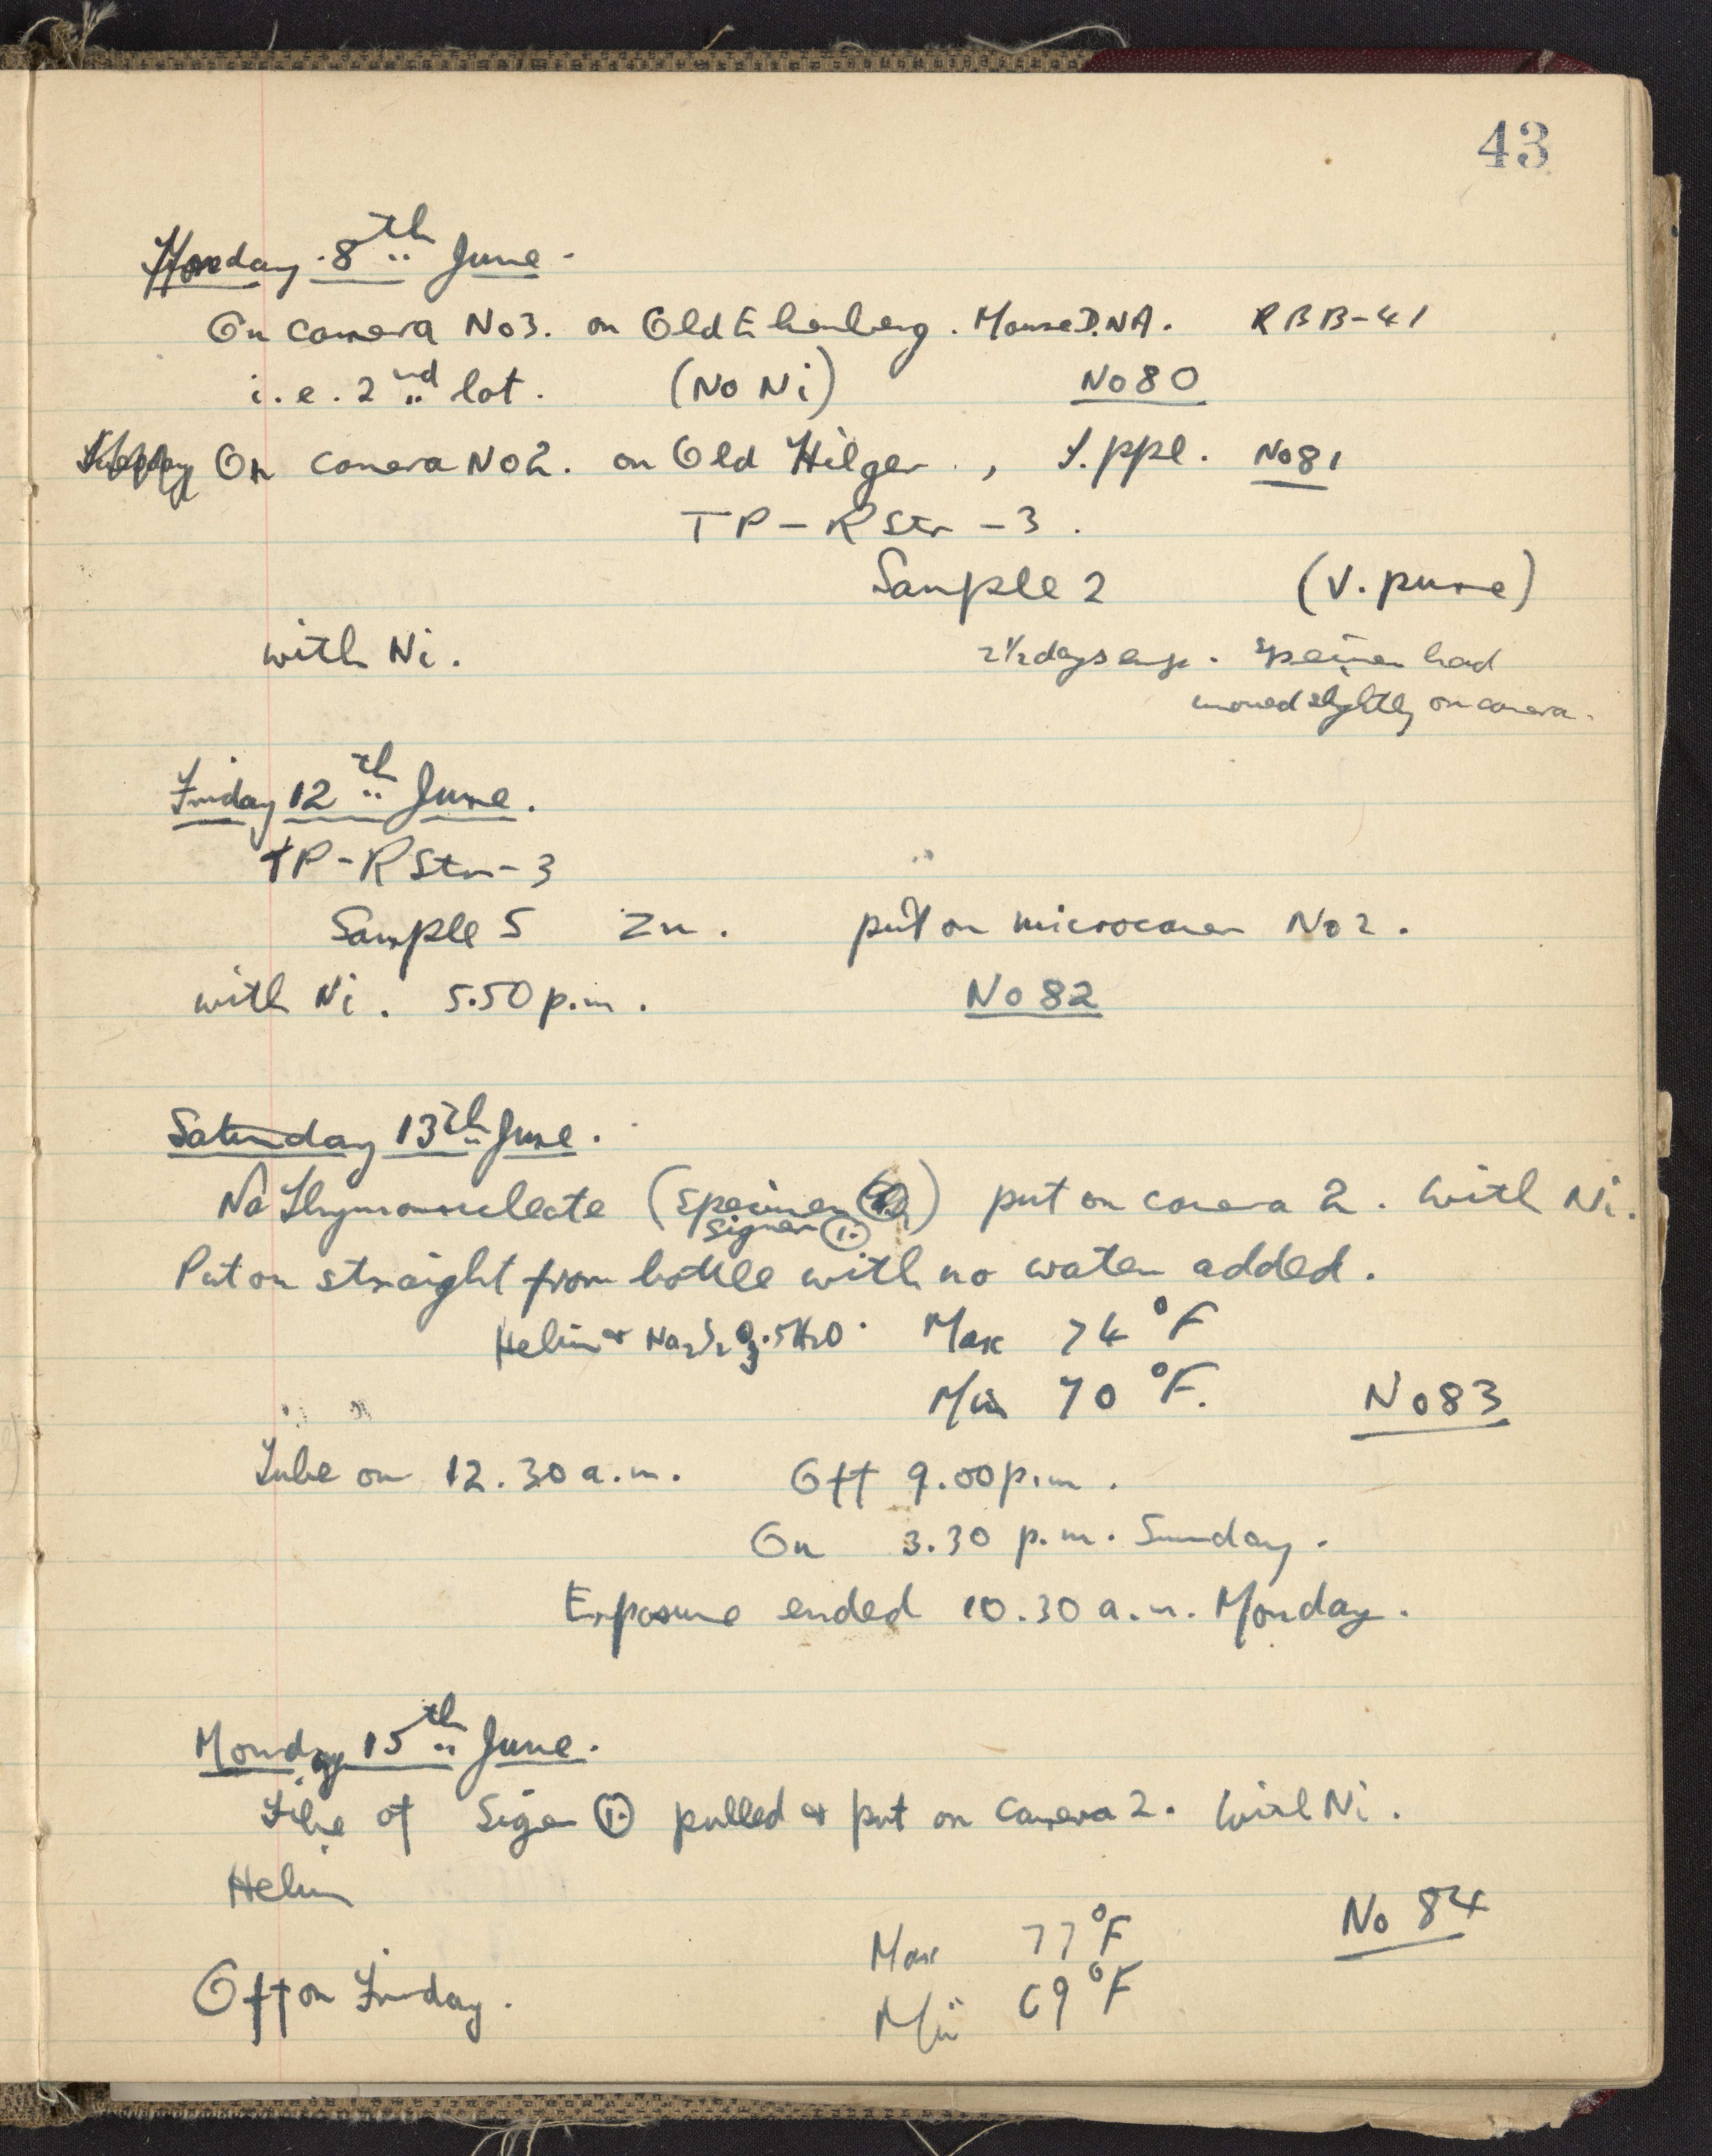 43
Monday 8th June.
On camera No3. on Old Ehrenberg. Mouse D.NA. RBB-41
i.e. 2nd lot. (No Ni) No 80
On camera No2. on Old Hilger, T.ppl. No 81
TP-RStr-3.
Sample 2 (V. pure)
with Ni. 2½ days exp. Specimen had
moved slightly on camera.
Friday 12th June.
TP-RStr-3
Sample 5 Zn. put on microcamera No 2.
with Ni. 5.50 p.m. No 82
Saturday 13th June.
Na Thymonucleate (Specimen) put on camera 2. With Ni.
Signer ①
Put on straight from bottle with no water added.
Helium & Na2S2O3.5H2O. Max 74°F
Min 70°F. No 83
Tube on 12.30 a.m. Off 9.00 p.m.
On 3.30 p.m. Sunday.
Exposure ended 10.30 a.m. Monday.
Monday 15th June.
Fibre of Signer ① pulled & put on camera 2. With Ni.
Helium
No 84
Max 77°F
Off on Friday. Min 69°F